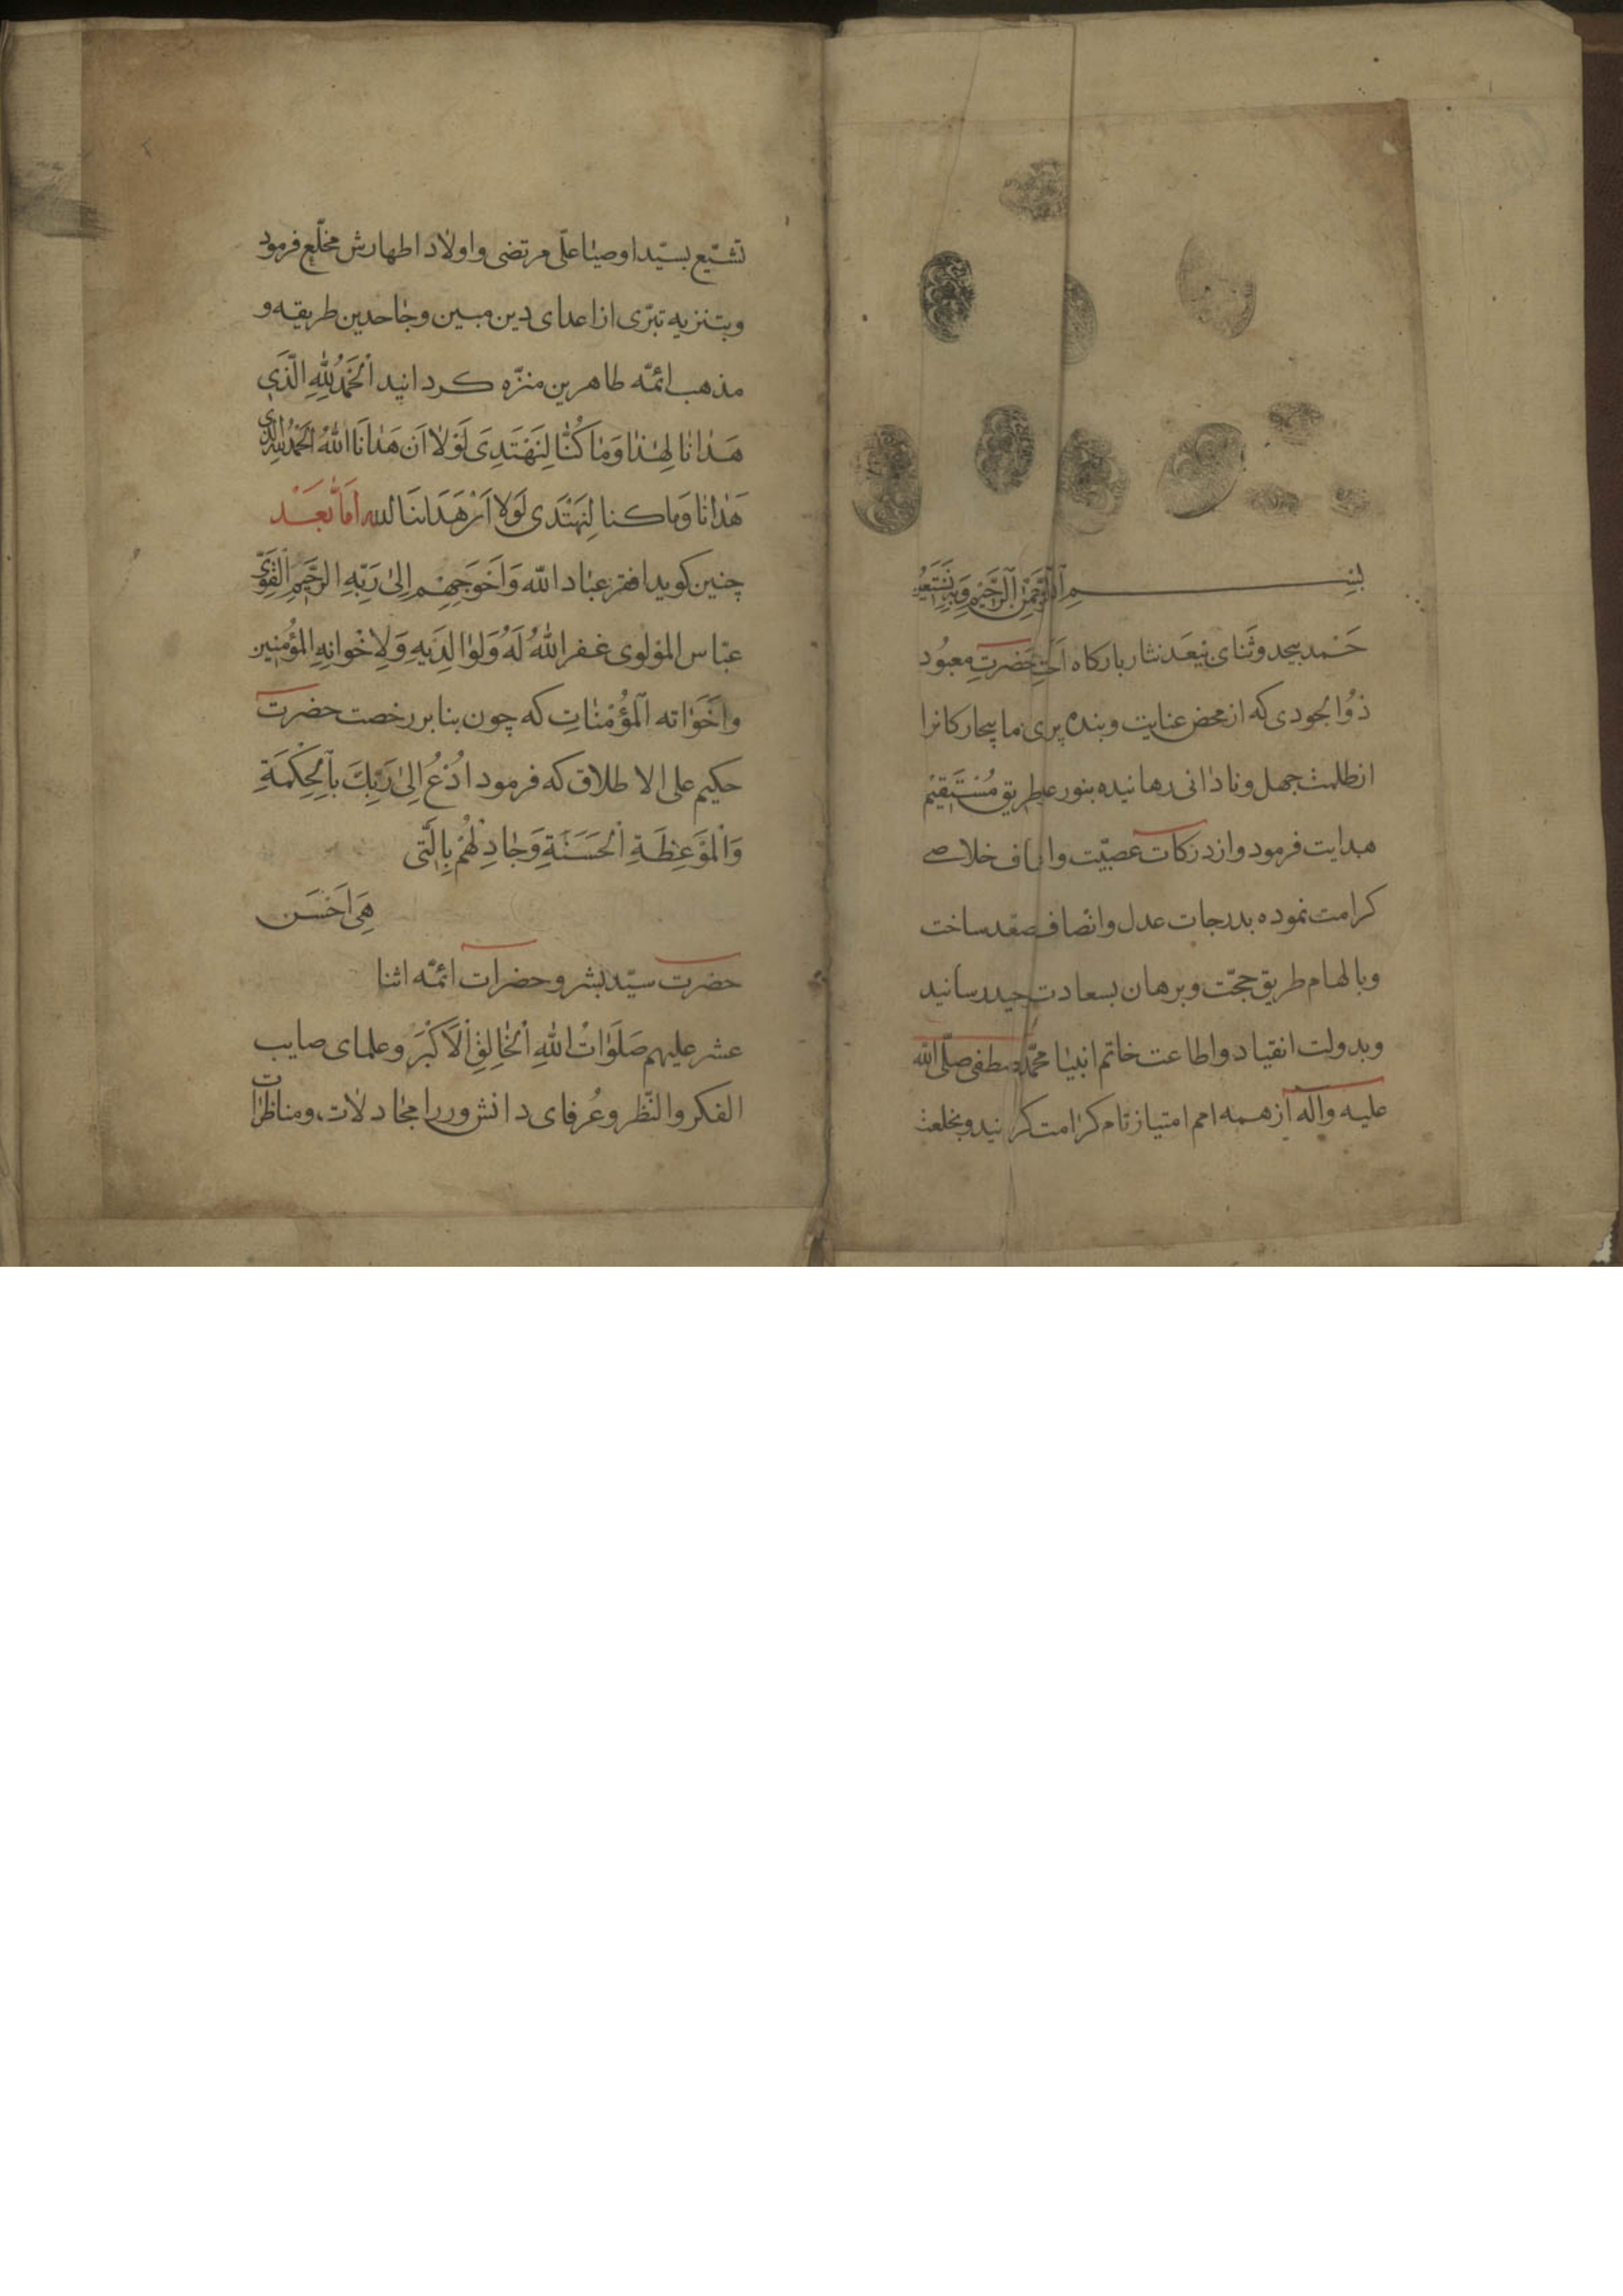 بسم الله الرحمن الرحیم وبه نستعین
حَمد بیحد وثنای بیعَد نثار بارکاه حَضرتِ معبُود
ذوُالجودی که از محض عنایت وبنده پری ما بیچارکانرا
ازظلمت جهل ونادانی رهانیده بنور طریق مُسْتَقیْم
هدایت فرمود واز درکات عصبیّت خلاصے
کرامت نموده بدرجات عدل وانصاف صعد ساخت
وبالهام طریق حجّت وبرهان بسعادت رسانید
وبدولت انقیاد واطاعت خاتم انبیٰا محمّد مصطفی صلّی الله
علیه واله از همه امم امتیاز تام کرٰامت وبخلعت
تشیّع بسیّد اوصیٰا علّی مرتضی واولاد اطهارش مخلّع فرمود
وبتنزیه تبرّی از اعدای دین مبین وجٰاحدین طریقه و
مذهب ائمّه طاهرین منزّه کردانید اَلْحَمْدُ لِلّٰهِ الَّذی
هَدٰانٰا لِهٰذٰا وَمٰا کُنّٰا لِنَهْتَدِیَ لَوْلاٰ اَن هَدٰانَا اللّٰهُ اَلحَمْدُ لِلّٰهِ الَّذی
هَدٰانٰا وَما کنا لِنَهْتَدی لَولا اَنْ هَدٰانَا الله اَمّا بَعَد
چنین کوید افقر عبٰاد اللّه وَاَحَوَجِهِم اِلیٰ رَبِّهِ الرَّحیمِ اَلقَوِّی
عبّاس المولوی غفر اللّٰهُ لَهُ وَلِوٰالِدَیهِ وَلِاِخْوانِهِ المؤمِنین
واَخَوٰاته المؤُمْنٰاتِ که چون بنا بر رخصت حضرت
حکیم علی الاطلاق که فرمود اُدْعُ اِلیٰ رَبِّكَ باَلِحِکْمَةِ
وَالْمَوعِظَةِ اَلْحَسَنَةِ وَجٰادِلْهُمْ بِالَّتی
هِیَ اَحْسَن
حضرت سیّد بشر وحضرات ائمّه اثنا
عشر علیهم صَلَوٰاتُ اللّٰهِ اَلْخٰالِقِ اَلاَکْبَرَ وعلمای صایب
الفکر والنّظر وعُرفای دانش ور را مجٰادلاٰت ومناظرٰات